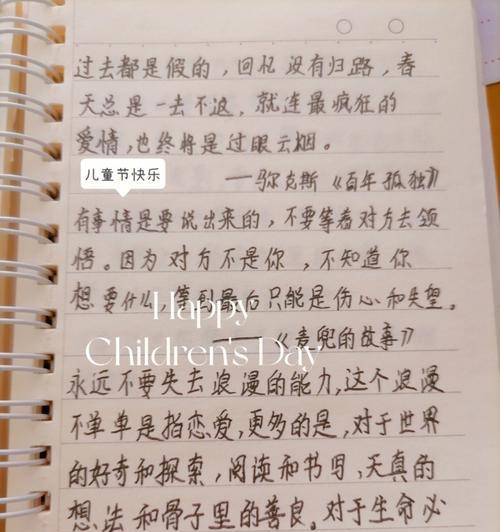 过去都是假的，回忆没有归路，春
天总是一去不返，就连最疯狂的
爱情，也终将是过眼云烟。
儿童节快乐
——马尔克斯《百年孤独》
有事情是要说出来的，不要等着对方去领
悟。因为对方不是你，不知道你
想要什么，等到最后只能是伤心和失望。
Happy
——《麦兜的故事》
Children's Day
永远不要失去浪漫的能力，这个浪漫
不单单是指恋爱，更多的是，对于世界
的好奇和探索，阅读和书写，天真的
想法和骨子里的善良。对于生命必